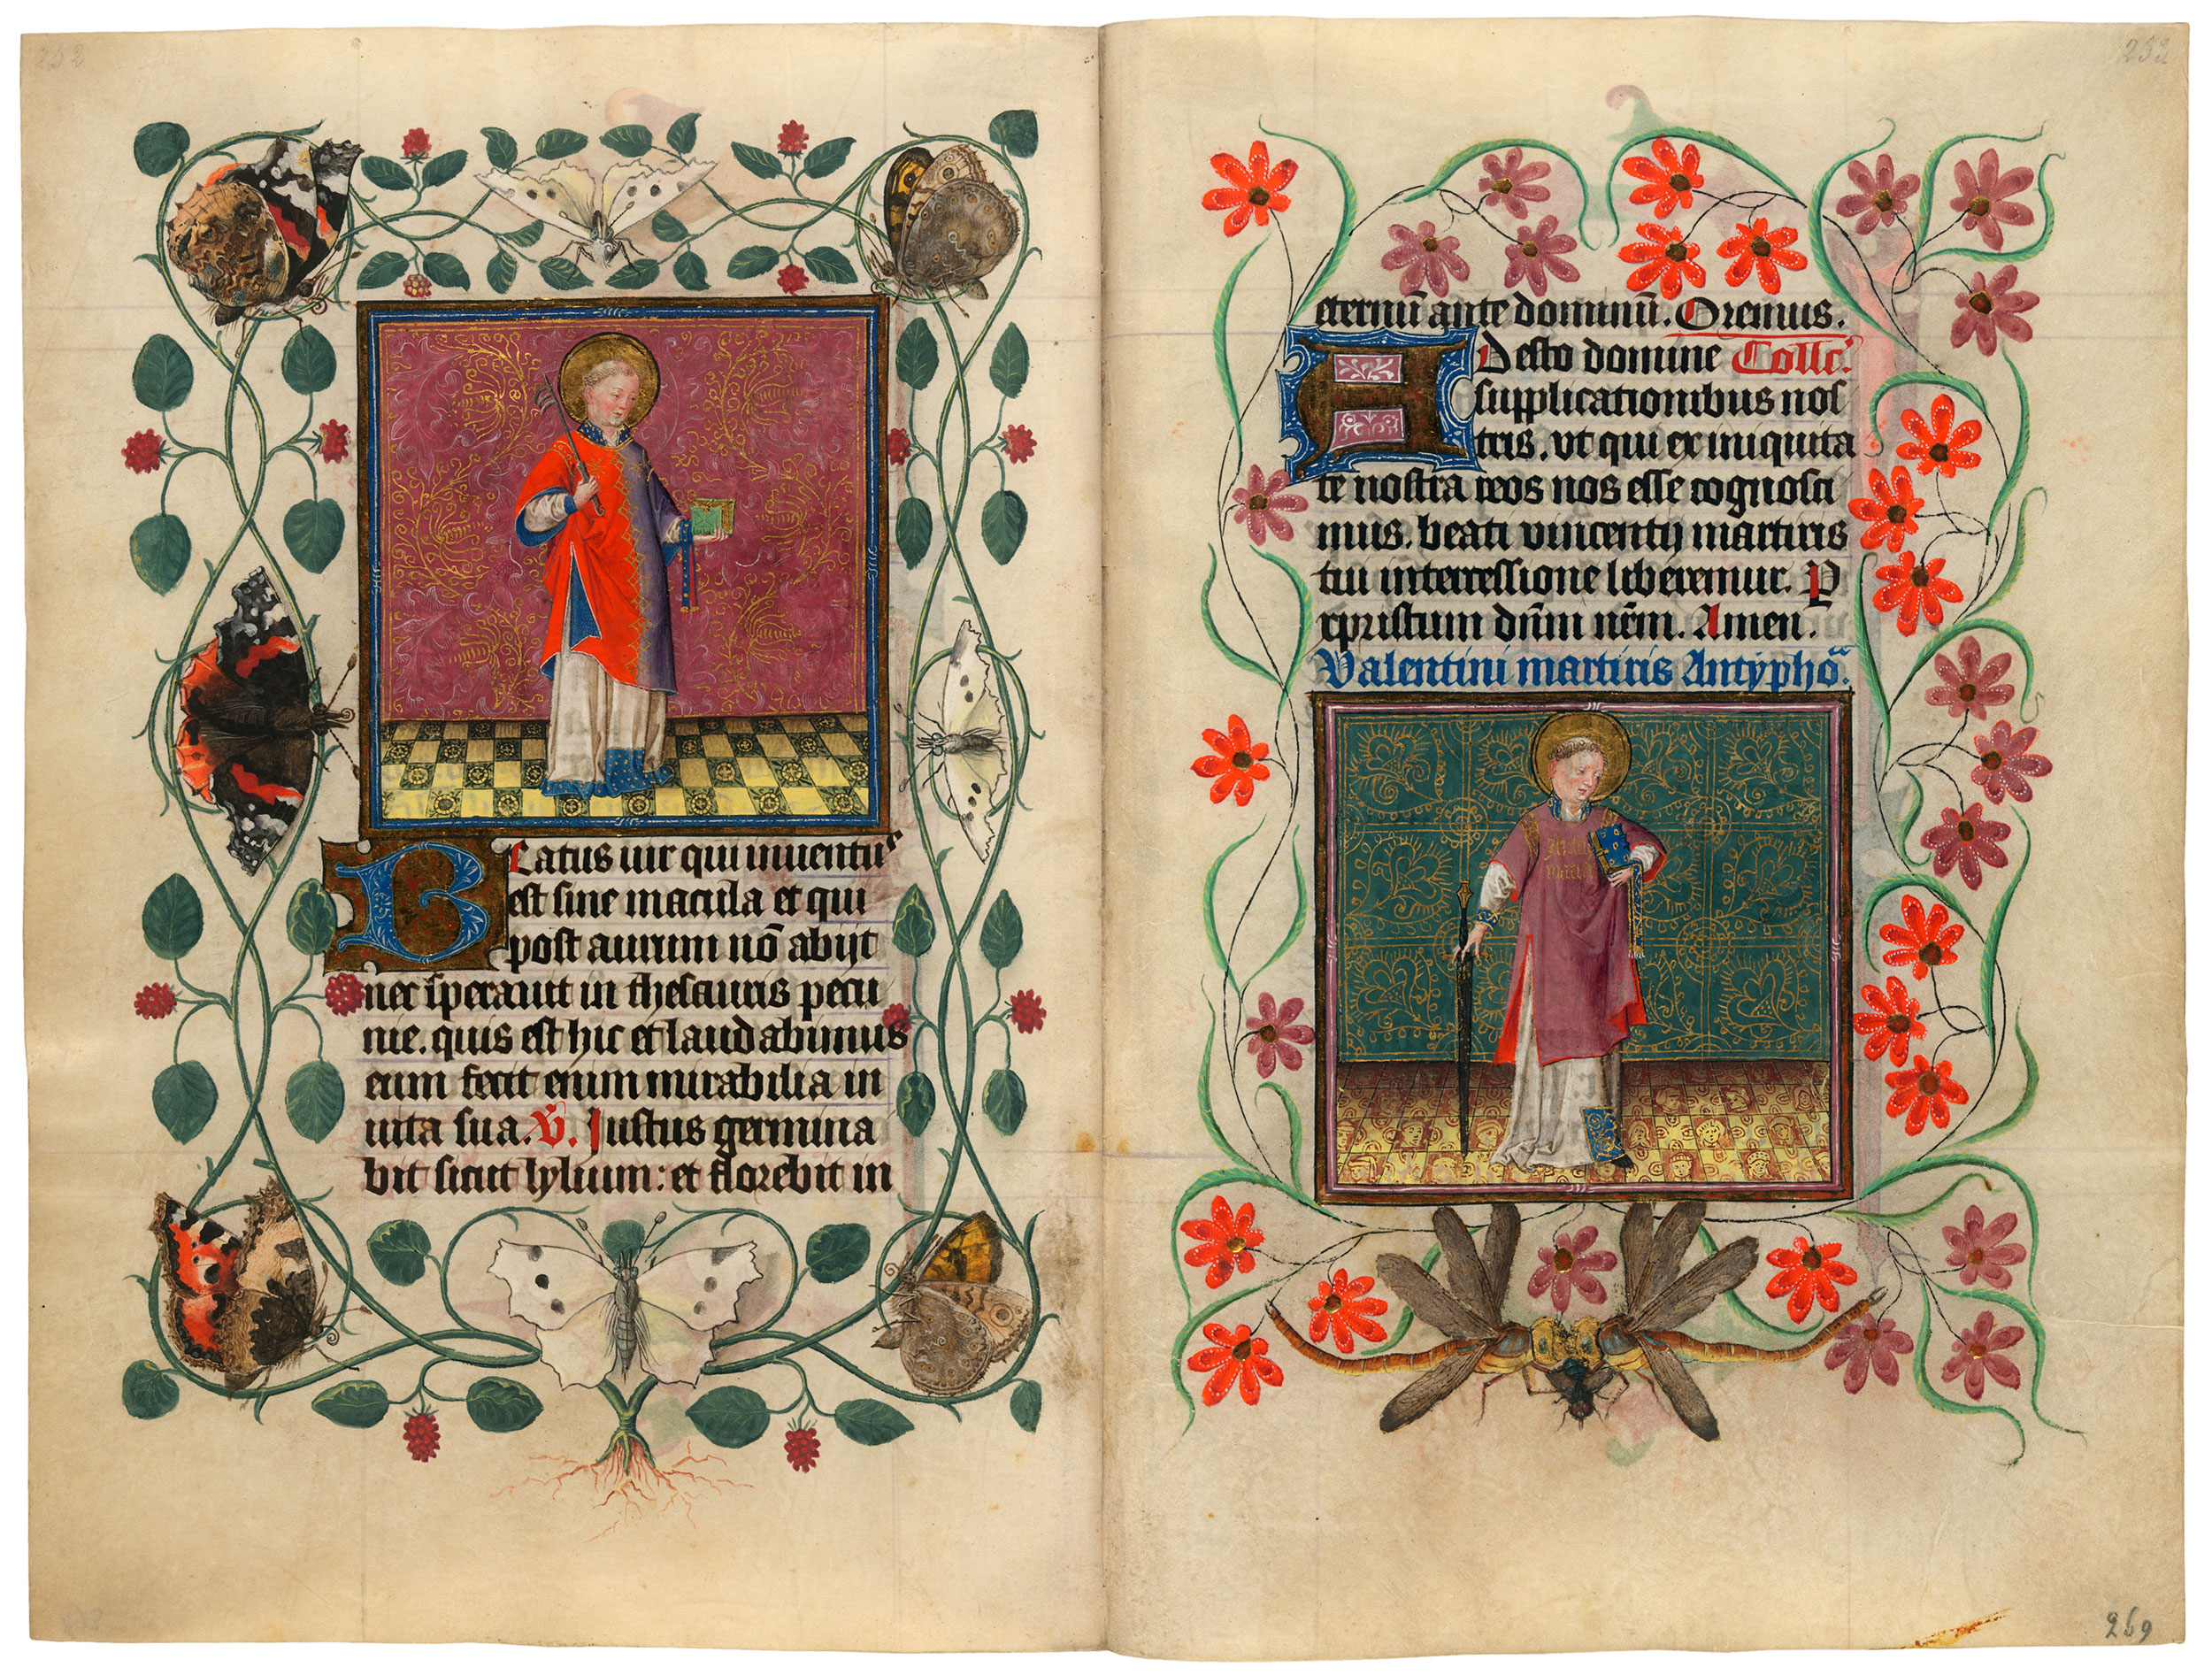 252
Beatus uir qui inuentus
est sine macula et qui
post aurum nō abijt
nec sperauit in thesauris pecu
nie. quis est hic et laudabimus
eum fecit enim mirabilia in
uita sua. V̄. Iustus germina
bit sicut lylium: et florebit in
252
eternū ante dominū. Oremus.
Adesto domine Collc̄.
supplicationibus nos
tris. vt qui ex iniquita
te nostra reos nos esse cognosci
mus. beati vincentij martiris
tui intercessione liberemur. P
xpristum dn̄m nr̄m. Amen.
Valentini martiris Antyphōa.
269